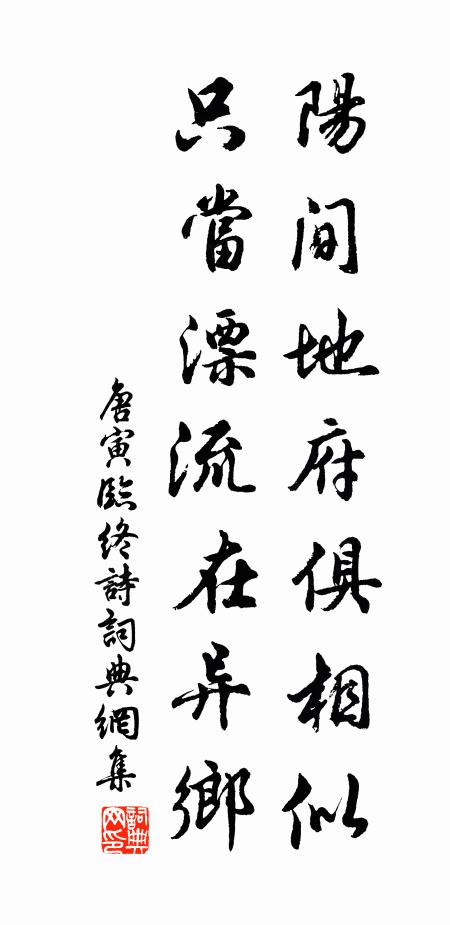 陽间地府俱相似
只當漂流在异鄉
唐寅臨终詩詞典網集
詞典网印